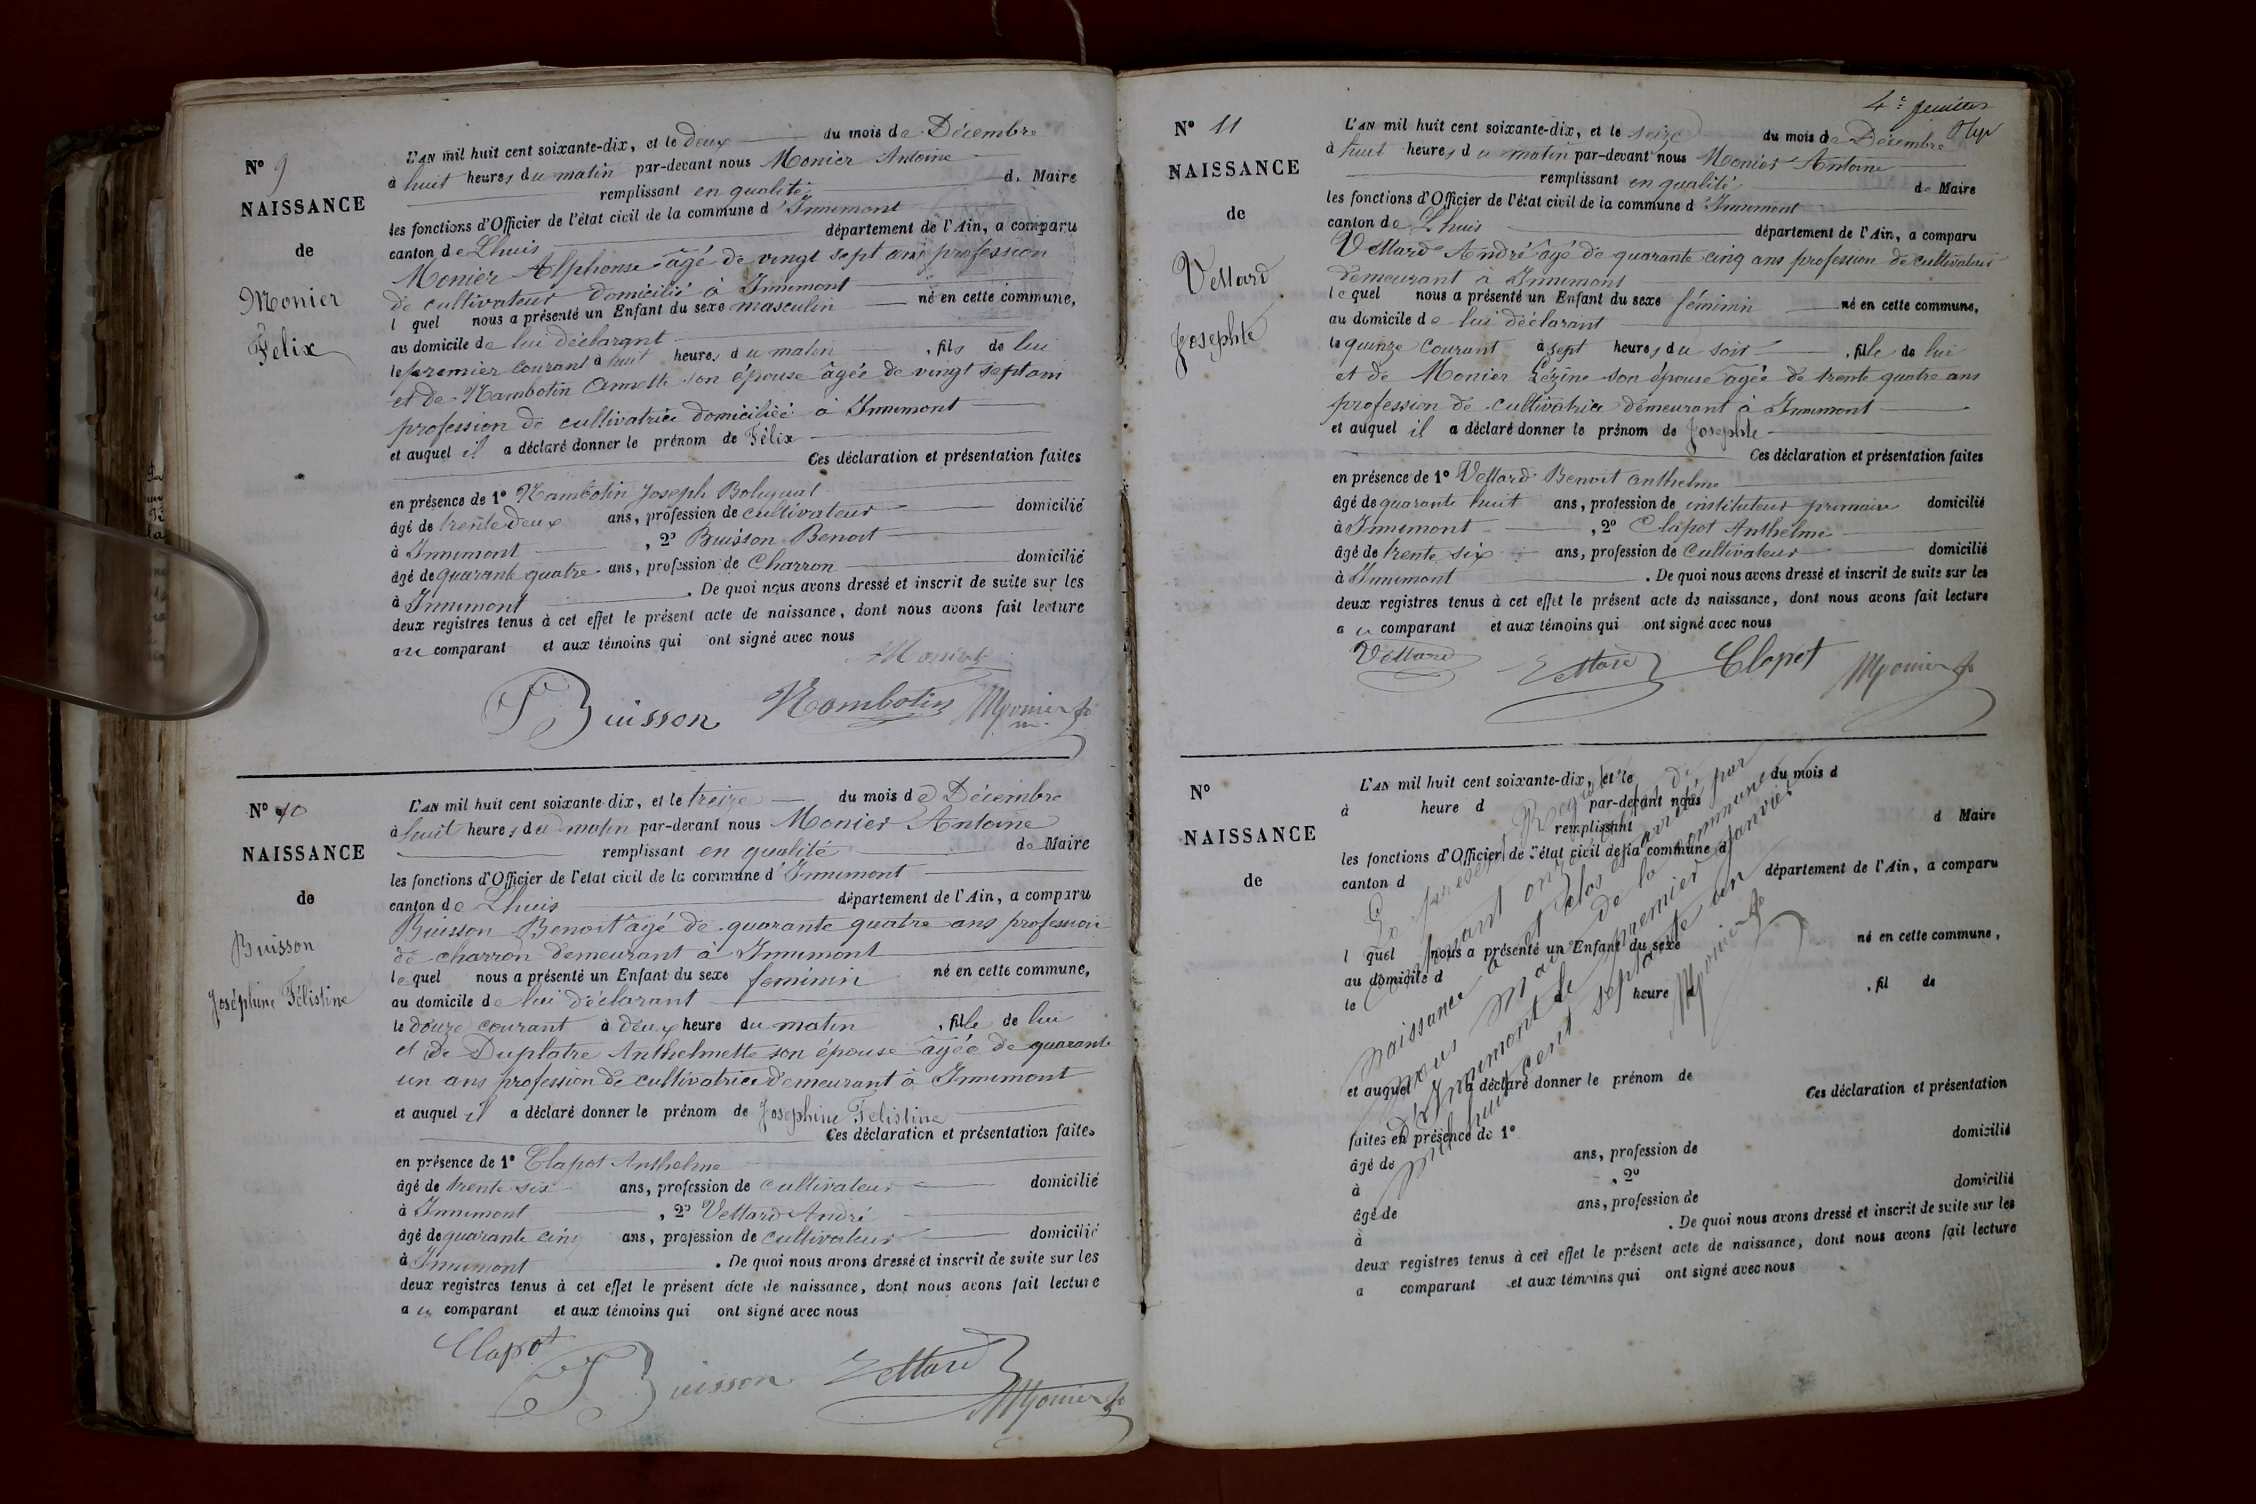 N° 9
NAISSANCE
de
Monier
Felix
L'AN mil huit cent soixante-dix, et le deux du mois de Décembre
à huit heures du matin par-devant nous Monier Antoine
remplissant en qualité de Maire
les fonctions d'Officier de l'état civil de la commune d'Innimont
canton de Lhuis département de l'Ain, a comparu
Monier Alphonse âgé de vingt sept ans profession
de cultivateur domicilié à Innimont
l quel nous a présenté un Enfant du sexe masculin né en cette commune,
au domicile de lui déclarant
le premier courant à huit heures du matin , fils de lui
et de Nambotin Annette son épouse âgée de vingt sept ans
profession de cultivatrice domiciliée à Innimont
et auquel il a déclaré donner le prénom de Félix
Ces déclaration et présentation faites
en présence de 1° Nambotin Joseph
âgé de trente deux ans, profession de cultivateur domicilié
à Innimont , 2° Buisson Benoit
âgé de quarante quatre ans, profession de Charron domicilié
à Innimont . De quoi nous avons dressé et inscrit de suite sur les
deux registres tenus à cet effet le présent acte de naissance, dont nous avons fait lecture
au comparant et aux témoins qui ont signé avec nous
Monier
Buisson Nambotin Monier
N° 10
NAISSANCE
de
Buisson
Joséphine Félistine
L'AN mil huit cent soixante-dix, et le treize du mois de Décembre
à huit heures du matin par-devant nous Monier Antoine
remplissant en qualité de Maire
les fonctions d'Officier de l'état civil de la commune d'Innimont
canton de Lhuis département de l'Ain, a comparu
Buisson Benoit âgé de quarante quatre ans profession
de charron demeurant à Innimont
lequel nous a présenté un Enfant du sexe feminin né en cette commune,
au domicile de lui déclarant
le douze courant à deux heure du matin , fille de lui
et de Duplatre Anthelmette son épouse âgée de quarante
un ans profession de cultivatrice demeurant à Innimont
et auquel il a déclaré donner le prénom de Josephine Félistine
Ces déclaration et présentation faites
en présence de 1° Clapot Anthelme
âgé de trente six ans, profession de cultivateur domicilié
à Innimont , 2° Vettard André
âgé de quarante cinq ans, profession de cultivateur domicilié
à Innimont . De quoi nous avons dressé et inscrit de suite sur les
deux registres tenus à cet effet le présent acte de naissance, dont nous avons fait lecture
au comparant et aux témoins qui ont signé avec nous
Clapot
Buisson Vettard
Monier
4e feuillet
N° 11
NAISSANCE
de
Vettard
Josephte
L'AN mil huit cent soixante-dix, et le seize du mois de Décembre
à huit heures du matin par-devant nous Monier Antoine
remplissant en qualité de Maire
les fonctions d'Officier de l'état civil de la commune d'Innimont
canton de Lhuis département de l'Ain, a comparu
Vettard André âgé de quarante cinq ans profession de cultivateur
demeurant à Innimont
lequel nous a présenté un Enfant du sexe féminin né en cette commune,
au domicile de lui déclarant
le quinze courant à sept heures du soir , fille de lui
et de Monier Lézine son épouse âgée de trente quatre ans
profession de cultivatrice demeurant à Innimont
et auquel il a déclaré donner le prénom de Josephte
Ces déclaration et présentation faites
en présence de 1° Vettard Benoit Anthelme
âgé de quarante huit ans, profession de instituteur primaire domicilié
à Innimont , 2° Clapot Anthelme
âgé de trente six ans, profession de Cultivateur domicilié
à Innimont . De quoi nous avons dressé et inscrit de suite sur les
deux registres tenus à cet effet le présent acte de naissance, dont nous avons fait lecture
au comparant et aux témoins qui ont signé avec nous
Vettard Vettard Clapot Monier
N°
NAISSANCE
de
L'AN mil huit cent soixante-dix, et le du mois d
à heure d par-devant nous
remplissant d Maire
les fonctions d'Officier de l'état civil de la commune d
canton d département de l'Ain, a comparu
l quel nous a présenté un Enfant du sexe né en cette commune,
au domicile d
le à heure d , fil de
et auquel a déclaré donner le prénom de
Ces déclaration et présentation
faites en présence de 1°
âgé de ans, profession de domicilié
à , 2°
âgé de ans, profession de domicilié
à . De quoi nous avons dressé et inscrit de suite sur les
deux registres tenus à cet effet le présent acte de naissance, dont nous avons fait lecture
a comparant et aux témoins qui ont signé avec nous
Le présent Registre
contenant onze actes de
naissance a été clos et arrêté par
nous maire de la commune
d'Innimont le premier janvier
mil huit cent septante un
Monier